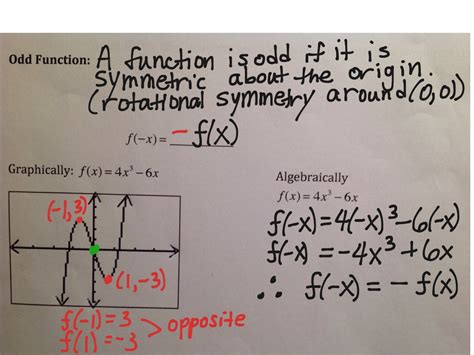 Odd Function: A function is odd if it is
symmetric about the origin.
(rotational symmetry around (0,0))
f(-x) = - f(x)
Graphically: f(x) = 4x³ – 6x
(-1,3)
(1,-3)
f(-1) = 3
f(1) = -3
> opposite
Algebraically
f(x) = 4x³ – 6x
f(-x) = 4(-x)³ - 6(-x)
f(-x) = -4x³ + 6x
∴ f(-x) = - f(x)